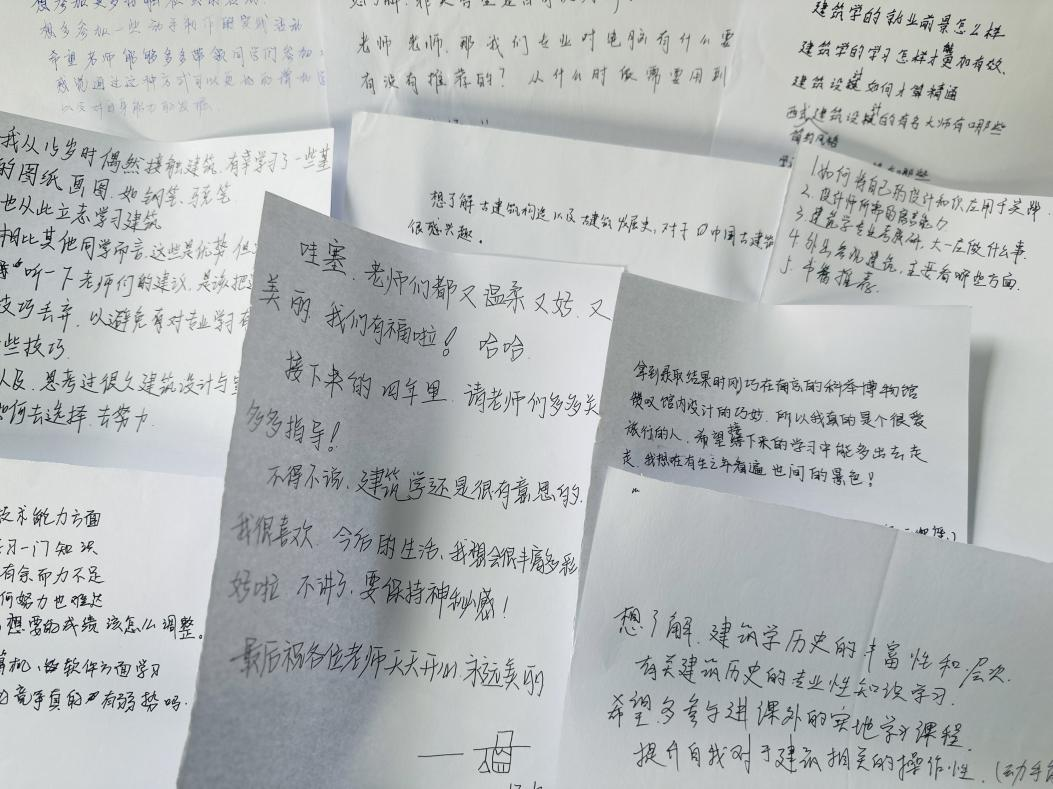 想多参加一些动手和
希望老师能够多多带领同学们参加
感觉通过这种方式可以更好的
老师 老师,那我们专业对电脑有什么要
有没有推荐的? 从什么时候需要用到
建筑学的就业前景怎么样
建筑学的学习怎样才能更加有效、
建筑设计如何才算精通
西式建筑设计的有名大师有哪些
我从15岁时偶然接触建筑,有幸学习了一些基
的图纸画图,如钢笔、马克笔
也从此立志学习建筑
相比其他同学而言,这些是优势
听一下老师们的建议,是该把
技巧丢弃,以避免有对专业学习有
些技巧.
以及,思考过很久建筑设计与
如何去选择.去努力.
想了解古建筑构造以及古建筑发展史,对于中国古建筑
很感兴趣。
1.如何将自己的设计知识应用于实牌
2.设计师所需的能力
3.建筑学专业考展研,大一应做什么事.
4.外出参观建筑,主要看哪些方面.
5.书籍推荐.
哇塞,老师们都又温柔又好,又
美丽,我们有福啦! 哈哈.
接下来的四年里,请老师们多多关
多多指导!
不得不说,建筑学还是很有意思的.
我很喜欢 今后的生活,我想会很丰富多彩
好啦 不讲了,要保持神秘感!
最后祝各位老师天天开心,永远美丽
拿到录取结果时刚巧在南京的科举博物馆
馆内设计的巧妙,所以我真的是个很爱
旅行的人,希望接下来的学习中能多出去走
走,我想在有生之年看遍世间的景色!
技术能力方面
学习一门知识
有余而力不足
何努力也难达
想要的成绩该怎么调整。
算机、软件方面学习
竞争真的有弱势吗.
想了解,建筑学历史的丰富性和层次.
有关建筑历史的专业性知识学习.
希望多参与进课外的实地学习课程.
提升自我对于建筑相关的操作性.(动手